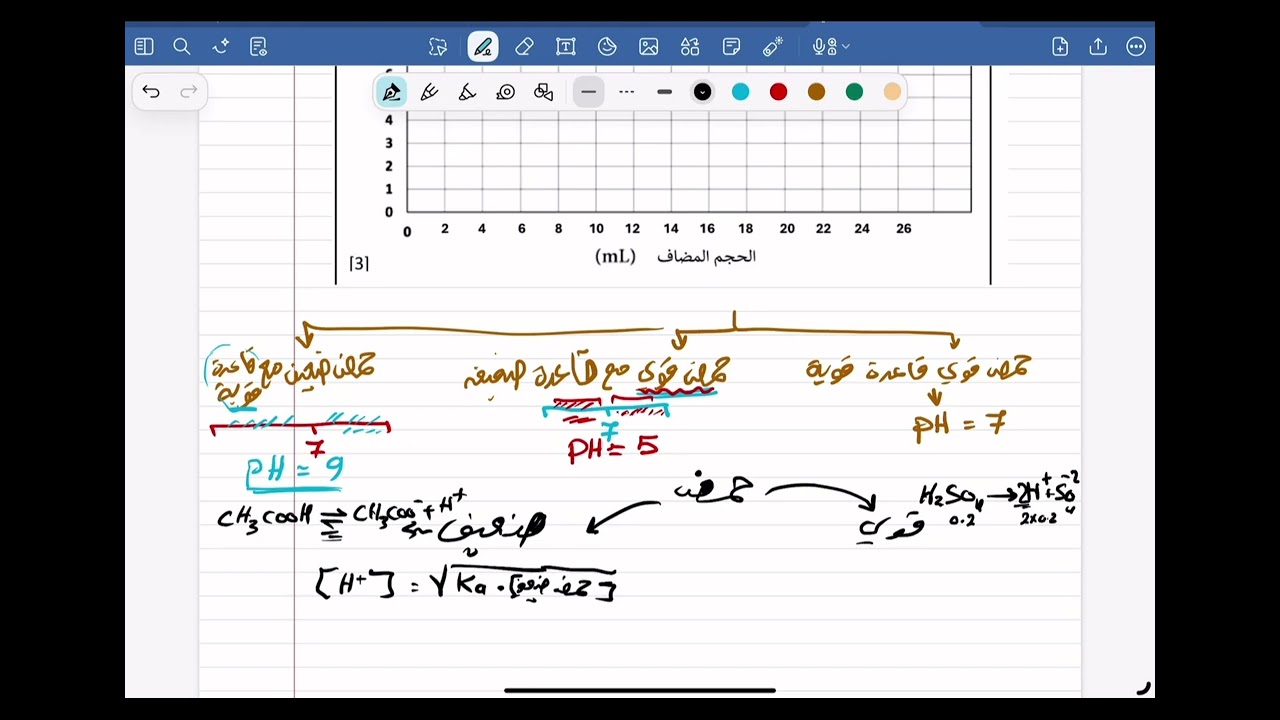 4
3
2
1
0
0 2 4 6 8 10 12 14 16 18 20 22 24 26
الحجم المضاف (mL)
[3]
حمض قوي قاعدة قوية
pH = 7
حمض قوي مع قاعدة ضعيفة
7
PH = 5
حمض ضعيف مع قاعدة قوية
7
pH = 9
حمض
قوي
H₂SO₄ → 2H⁺ + SO₄⁻²
0.2 2x0.2
ضعيف
CH₃COOH ⇌ CH₃COO⁻ + H⁺
[H⁺] = √Ka . [حمض ضعيف]